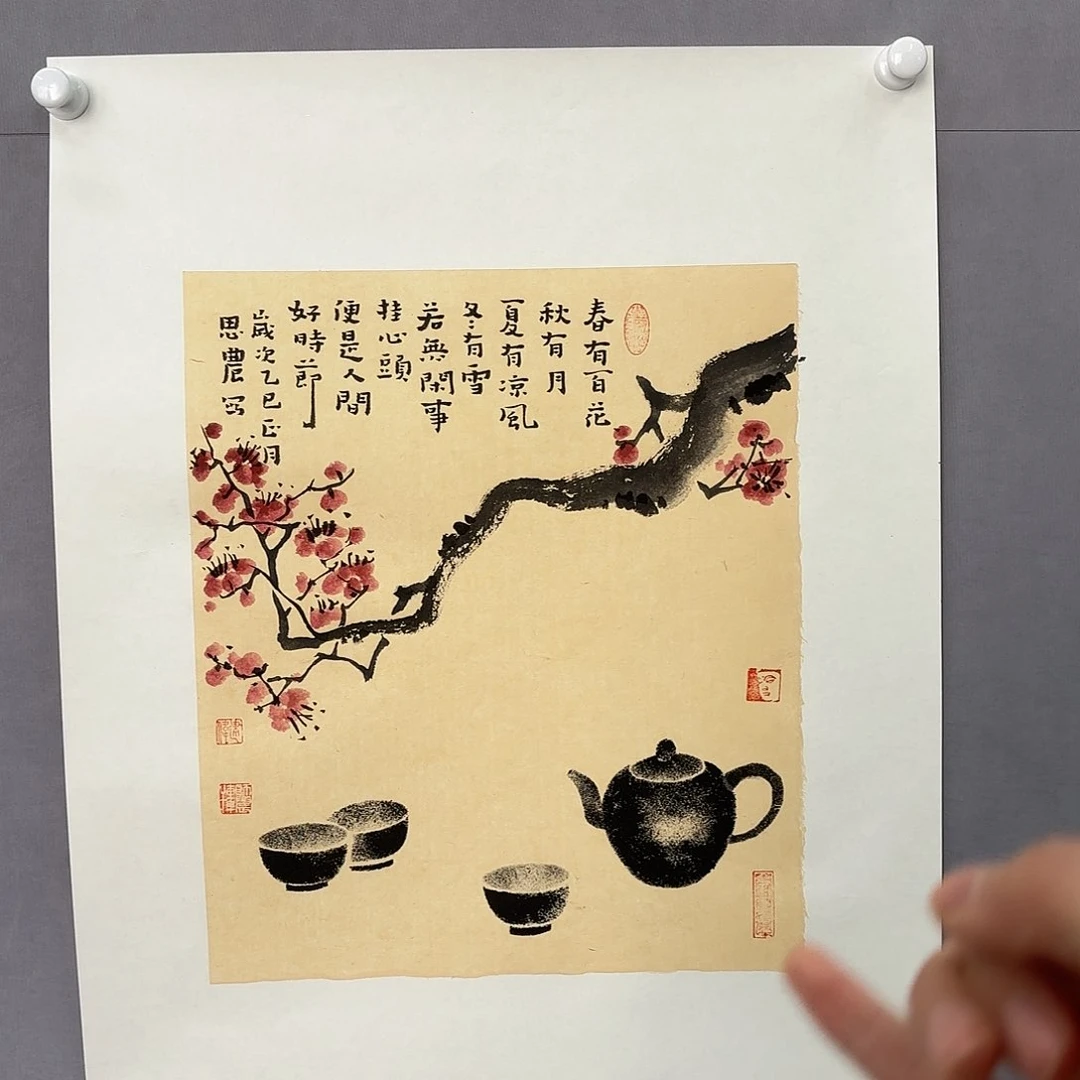 春有百花
秋有月
夏有凉風
冬:有雪
若無閑事
挂心頭
便是人間
好時節
歲次乙巳正月
思農写